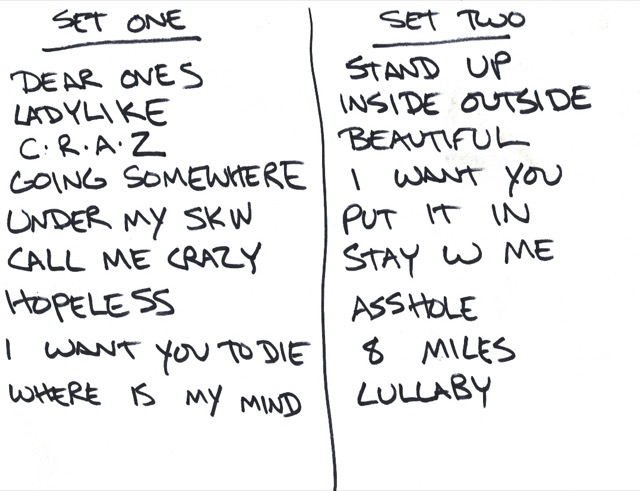 SET ONE
DEAR ONES
LADYLIKE
C.R.A.Z
GOING SOMEWHERE
UNDER MY SKIN
CALL ME CRAZY
HOPELESS
I WANT YOU TO DIE
WHERE IS MY MIND
SET TWO
STAND UP
INSIDE OUTSIDE
BEAUTIFUL
I WANT YOU
PUT IT IN
STAY W ME
ASSHOLE
8 MILES
LULLABY